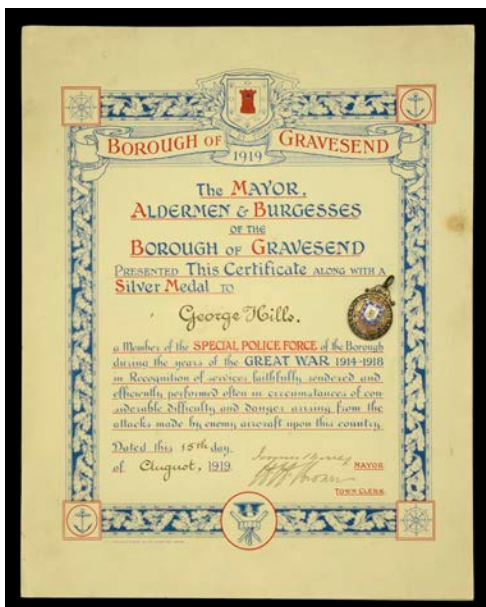 BOROUGH OF GRAVESEND
1919
The MAYOR,
ALDERMEN & BURGESSES
OF THE
BOROUGH OF GRAVESEND
PRESENTED This Certificate ALONG WITH A
Silver Medal TO
George Hills,
a Member of the SPECIAL POLICE FORCE of the Borough
during the years of the GREAT WAR 1914-1918
in Recognition of services faithfully rendered and
efficiently performed often in circumstances of con-
siderable difficulty and danger arising from the
attacks made by enemy aircraft upon this country.
Dated this 15th day
of August, 1919
MAYOR
TOWN CLERK.